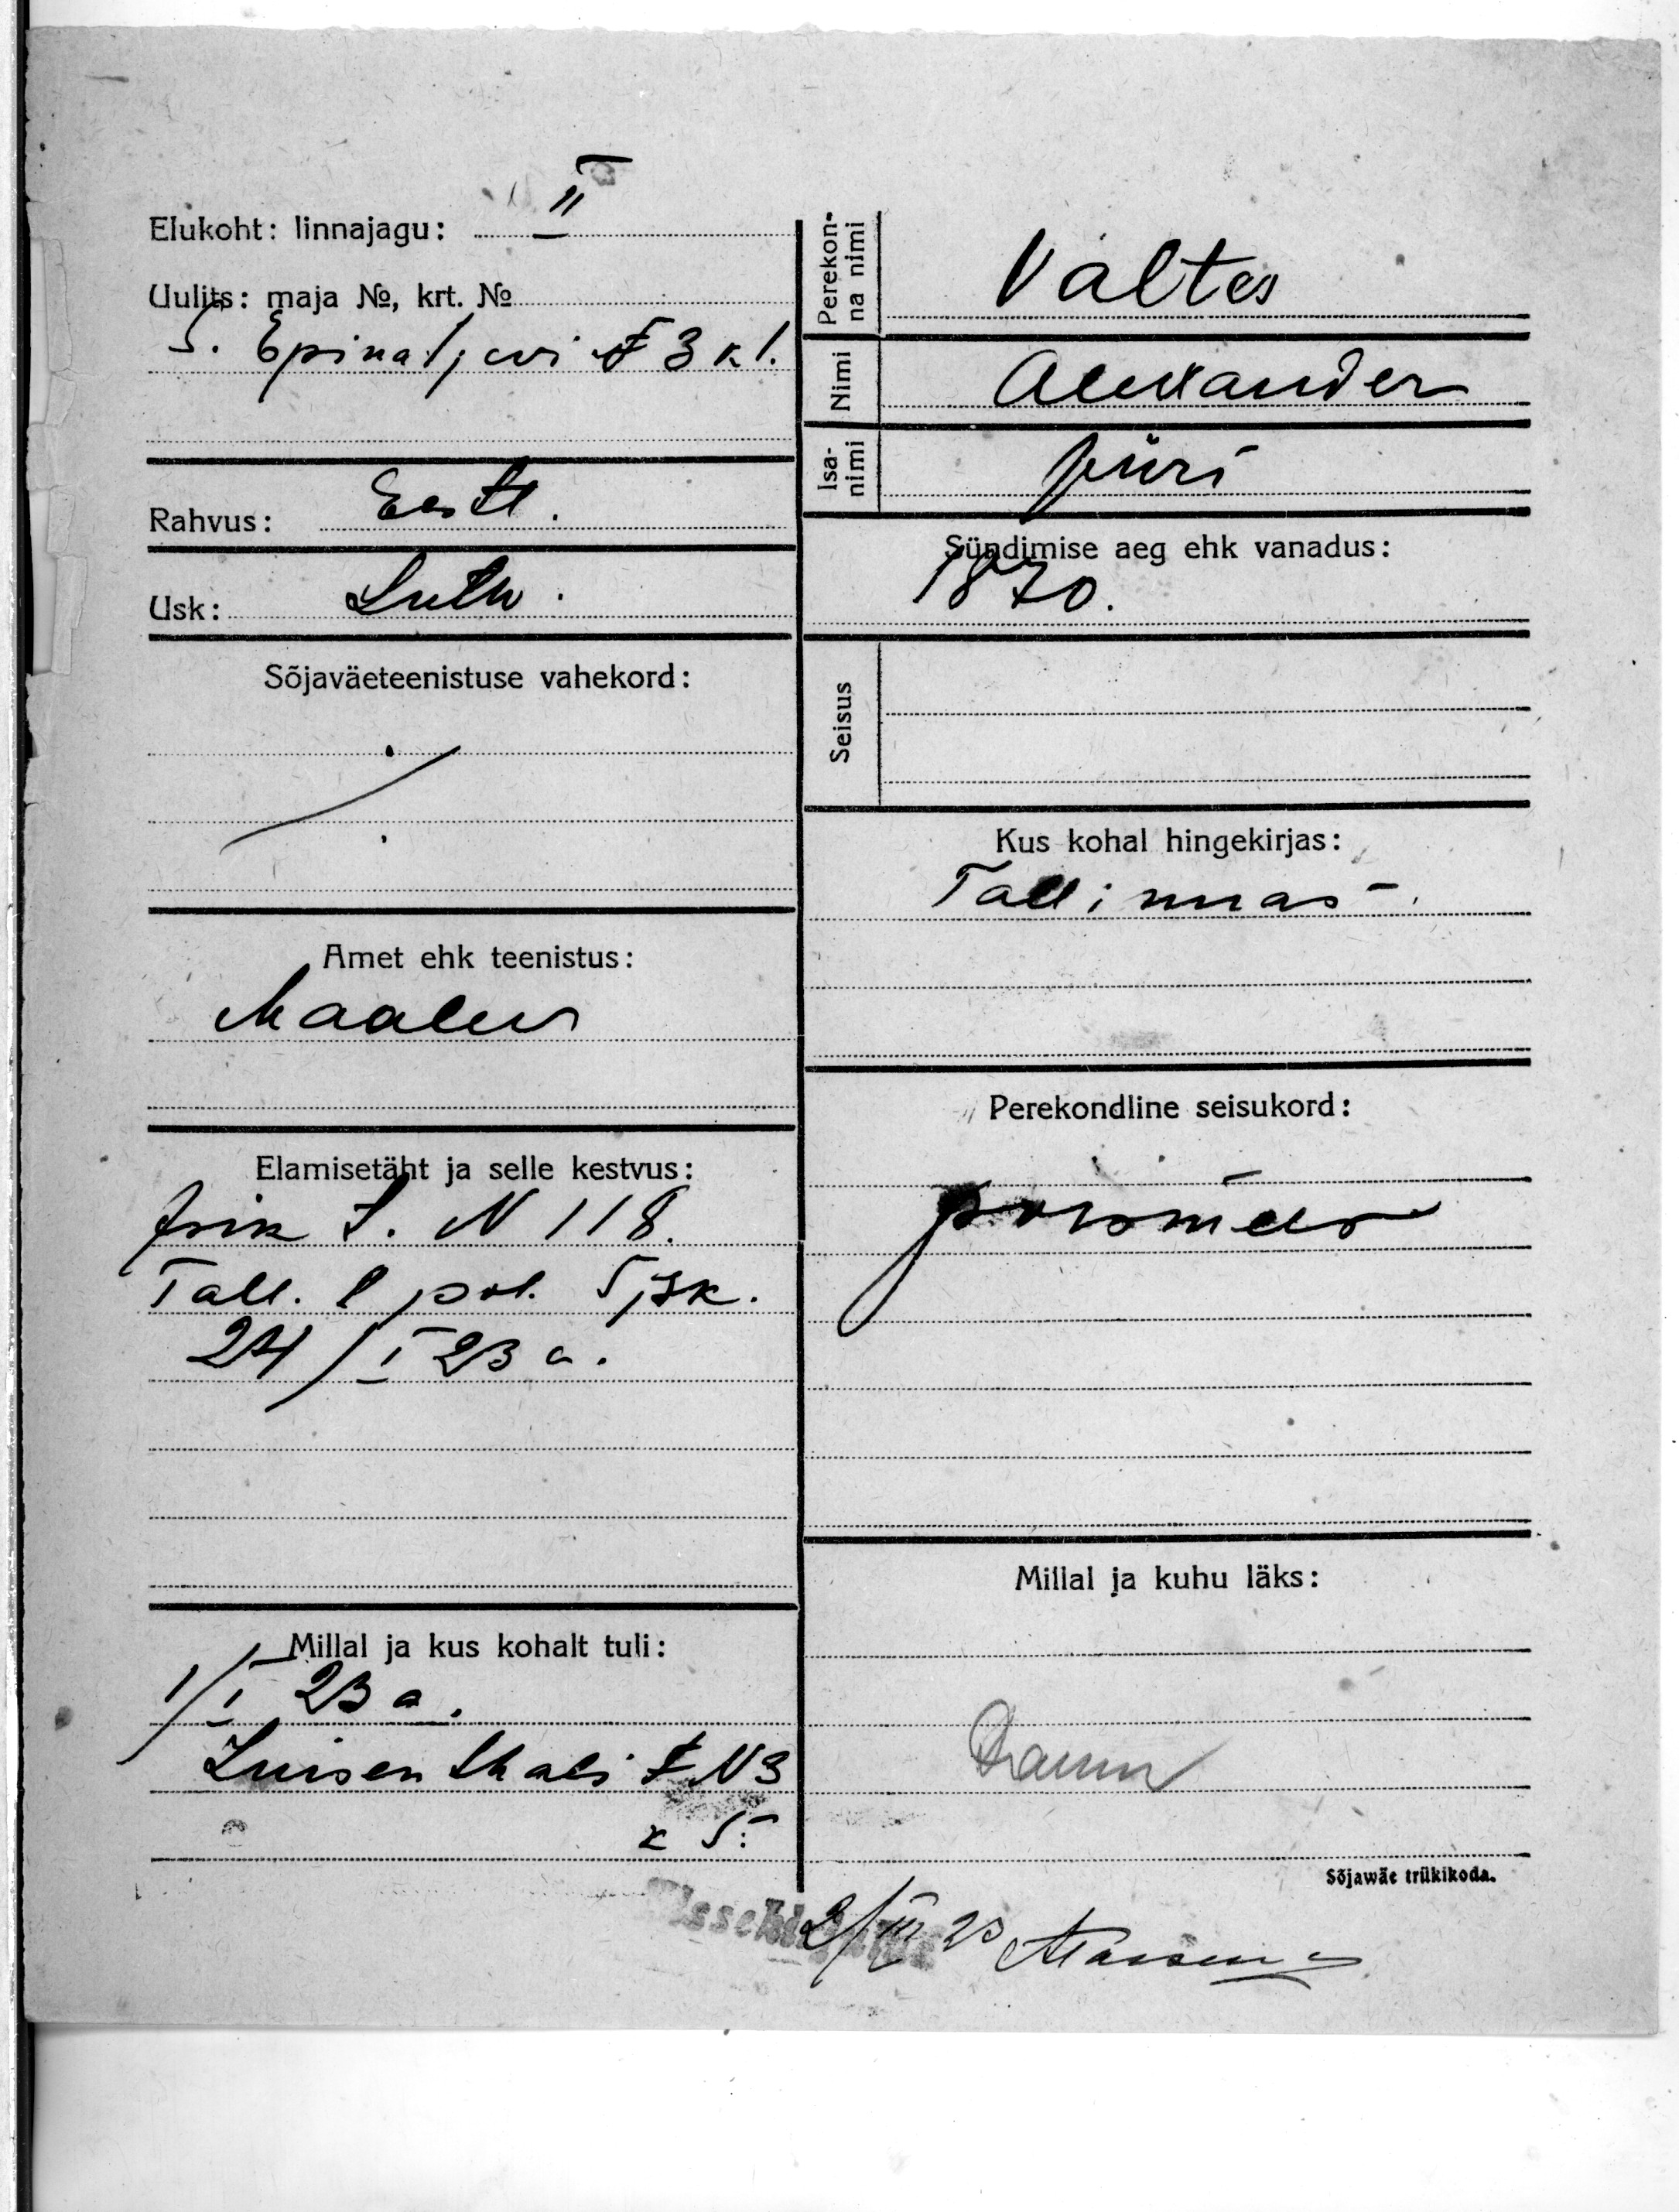 Elukoht: linnajagu: II
Uulits: maja №, krt. №
S. Epinatjevi t 3 k 1.
Rahvus: Eestl.
Usk: Luth.
Sõjaväeteenistuse vahekord:
Amet ehk teenistus:
Maaler
Elamisetäht ja selle kestvus:
Isik t. N 118.
Tall. l pol. 5 jsk.
24/I 23 a.
Millal ja kus kohalt tuli:
1/I 23 a.
Luisenthali t N3
k 5.
Perekon-
na nimi Valtes
Nimi Alexander
Isa-
nimi Jüri
Sündimise aeg ehk vanadus:
1870.
Seisus
Kus kohal hingekirjas:
Tallinnas.
Perekondline seisukord:
poismees
Millal ja kuhu läks:
Sõjawäe trükikoda.
2/III 23